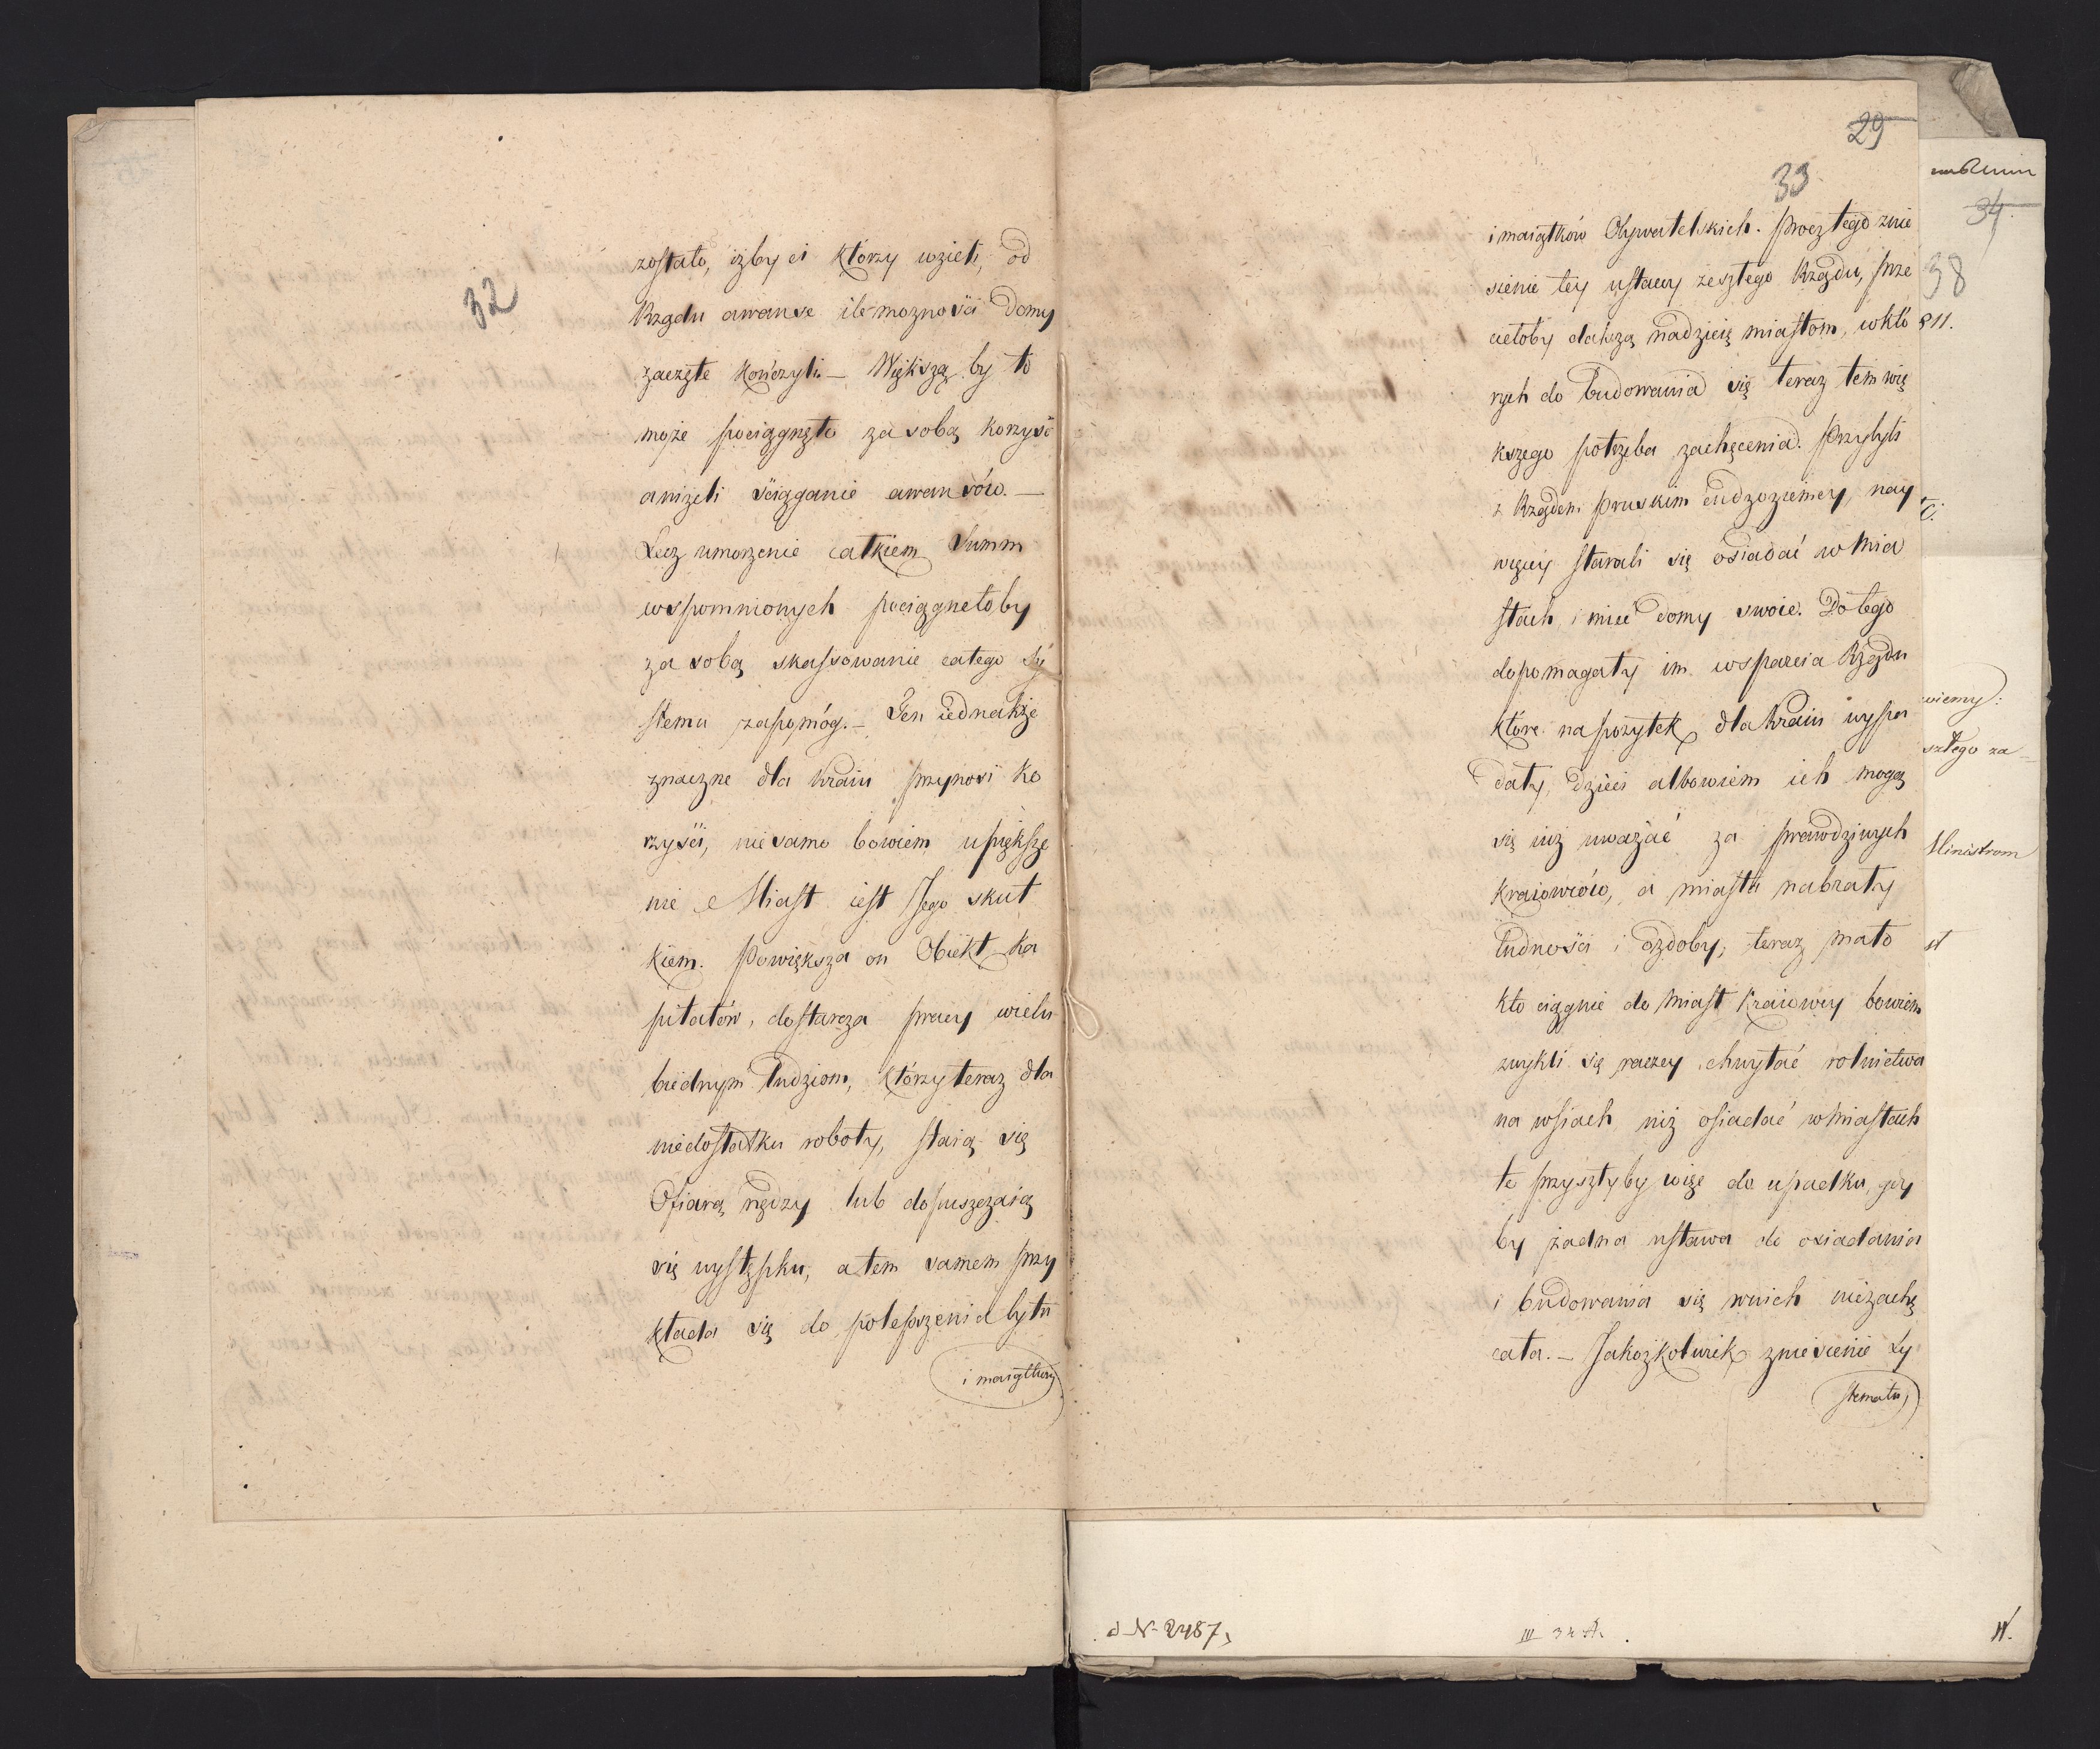 32
zostało, iżby ci którzy wzieli, od
Rządu awanse ile możności Domy
zaczęte kończyli. — Większą by to
może pociągnęło za sobą korzyść
aniżeli ściąganie awansów. —
Lecz umorzenie całkiem Summ
wspomnionych pociągnełoby
za sobą skassowanie całego Sy
stemu zapomóg. — Ten iednakże
znaczne dla Kraiu przynosi ko
rzyści, nie samo bowiem upiększe
nie Miast iest Jego skut
kiem. Powiększa on Obiekt ka
pitałów, dostarcza pracy wielu
biednym ludziom, którzy teraz dla
niedostatku roboty, staią się
Ofiarą nędzy lub dopuszczaią
się występku, a tem samem przy
kłada się do polepszenia bytu
i maiątków
29
33
i maiątków Obywatelskich. Procz tego znie
sienie tey ustawy zeszłego Rządu, prze
ciełoby dalszą nadzieię miastom, w któ
rych do budowania się teraz tem wię
kszego potrzeba zachęcenia. Przybyli
z Rządem pruskim cudzoziemcy, nay
więcey starali się osiadać w Mia
stach i mieć domy swoie. Do tego
dopomagały im wsparcia Rządu
które na pożytek dla Kraiu wypa
dały, dzieci albowiem ich mogą
się iuż uważać za prawdziwych
kraiowców, a miasta nabrały
ludności i ozdoby; teraz mało
kto ciągnie do Miast kraiowcy bowiem
zwykli się raczey chwytać rolnictwa
na wsiach niż osiadać w Miastach
te przyszłyby więc do upadku, gdy
by żadna ustawa do osiadania
i budowania się w nich niezachę
cała. — Jakożkolwiek zniesienie Sy
stematu,
34.
38
811.
wiemy:
szłego za=
Ministrom
st
d N. 2487,